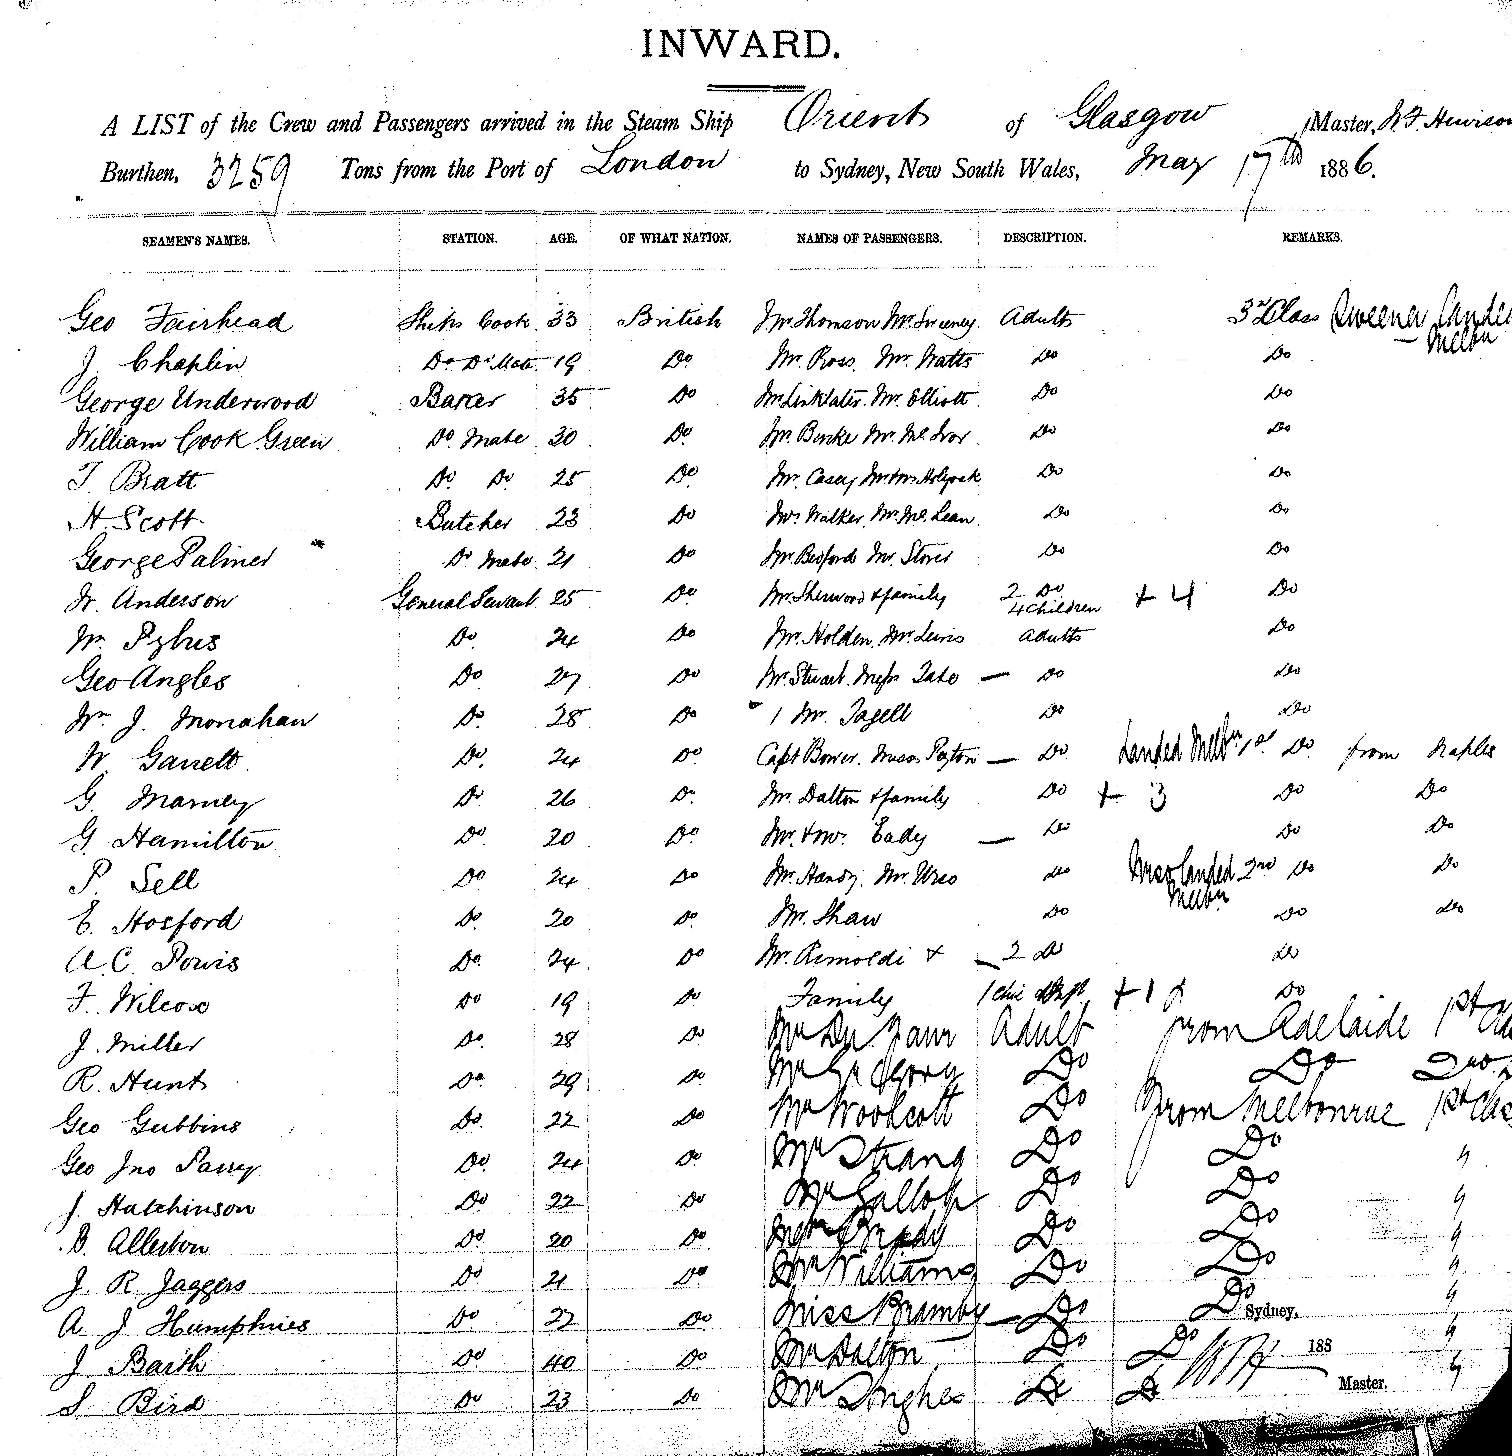 INWARD.
A LIST of the Crew and Passengers arrived in the Steam Ship Orient of Glasgow Master,
Burthen, 3259 Tons from the Port of London to Sydney, New South Wales, May 17th 1886.
SEAMEN'S NAMES. STATION. AGE. OF WHAT NATION. NAMES OF PASSENGERS. DESCRIPTION. REMARKS.
Geo Fairhead Ships Cook 33 British Mr Thomson Mr Sweeney Adults 3rd Class
J. Chaplin Do Do Mate 19 Do Mr. Ross. Mr. Watts Do Do
George Underwood Baker 35 Do Mr Linklater. Mr. Elliott Do Do
William Cook Green Do. Mate 30 Do. Mr. Mr. Mc Ivor Do Do
T. Bratt Do. Do. 25 Do Mr. Casey Do Do
H. Scott Butcher 23 Do Walker. Mr. Mc. Lean Do Do
George Palmer Do Mate 21 Do Mr. Mr. Do Do
W. Anderson General Servant 25 Do Mr. Sherwood & family 2 Do 4 Children + 4 Do
Wm Pybus Do. 24 Do Mr. Holden. Mr. Lewis Adults Do
Geo Angles Do 27 Do Mr. Stuart. — Do Do
Wm. J. Monahan Do. 28 Do 1 Mr. Do Do
W. Garrett Do. 24 Do Capt Bower. — Do Landed Melbn 1st Do from Naples
G. Marney Do 26 Do. Mr. Dalton & family Do + 3 Do Do
G. Hamilton Do 20 Do. Eady — Do Do Do
P. Sell Do 24 Do Mr. Handy. Mr. Do landed Melbn 2nd Do Do
E. Hosford Do. 20 Do. Mr. Shaw Do Do Do
A. C. Powis Do. 24 Do Mr. Rimoldi & 2 Do Do
F. Wilcox Do 19 Do Family + 1 Do
J. Miller Do. 28 Do Adult from Adelaide 1st
R. Hunt Do. 29 Do. Do Do
Geo Gubbins Do. 22 Do Mr Woolcott Do from Melbourne 1st
Geo Jno Parry Do. 24 Do. Mr Strang Do Do "
J. Hutchinson Do 22 Do Mr Gallop Do Do "
B. Allerton Do. 20 Do. Brady Do Do "
J. R Jaggers Do 21 Do Mr Williams Do Do "
A J Humphries Do. 22 Do Miss — Do Do Sydney, "
J Do 40 Do Mr Dalton Do Do 188 "
S Bird Do 23 Do Mr Do Do Master. "